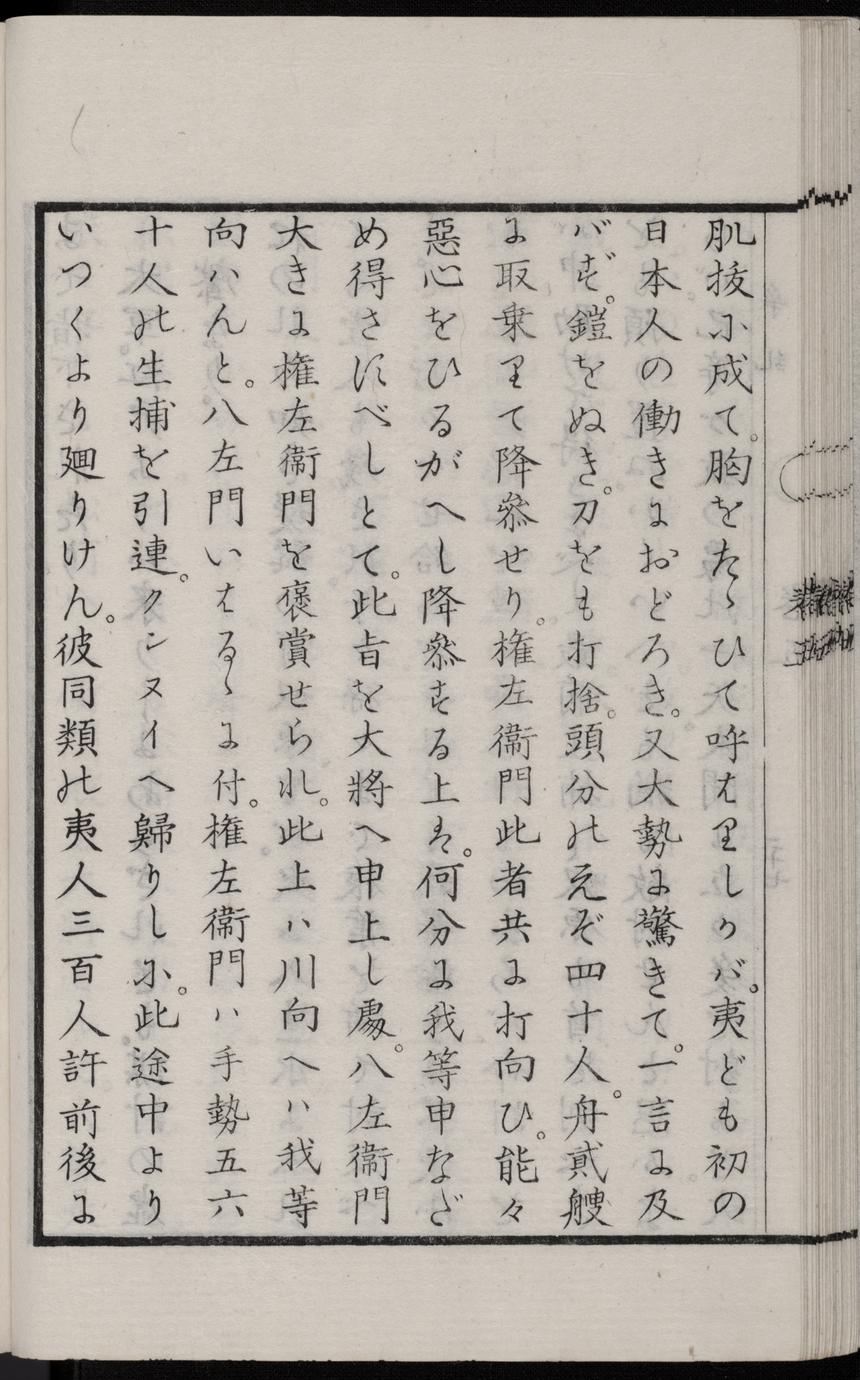 肌抜に成て。胸をたゝひて呼はりしかバ。夷ども初の
日本人の働きにおどろき。又大勢に驚きて。一言に及
バず。鎧をぬき。刀をも打捨。頭分のえぞ四十人。舟貳艘
に取乗りて降叅せり。権左衞門此者共に打向ひ。能々
惡心をひるがへし降叅する上は。何分に我等申なだ
め得さすべしとて。此旨を大將へ申上し處。八左衞門
大きに権左衞門を褒賞せられ。此上ハ川向へハ我等
向ハんと。八左門いはるゝに付。権左衞門ハ手勢五六
十人の生捕を引連。クンヌイへ歸りしに。此途中より
いつくより廻りけん。彼同類の夷人三百人許前後に